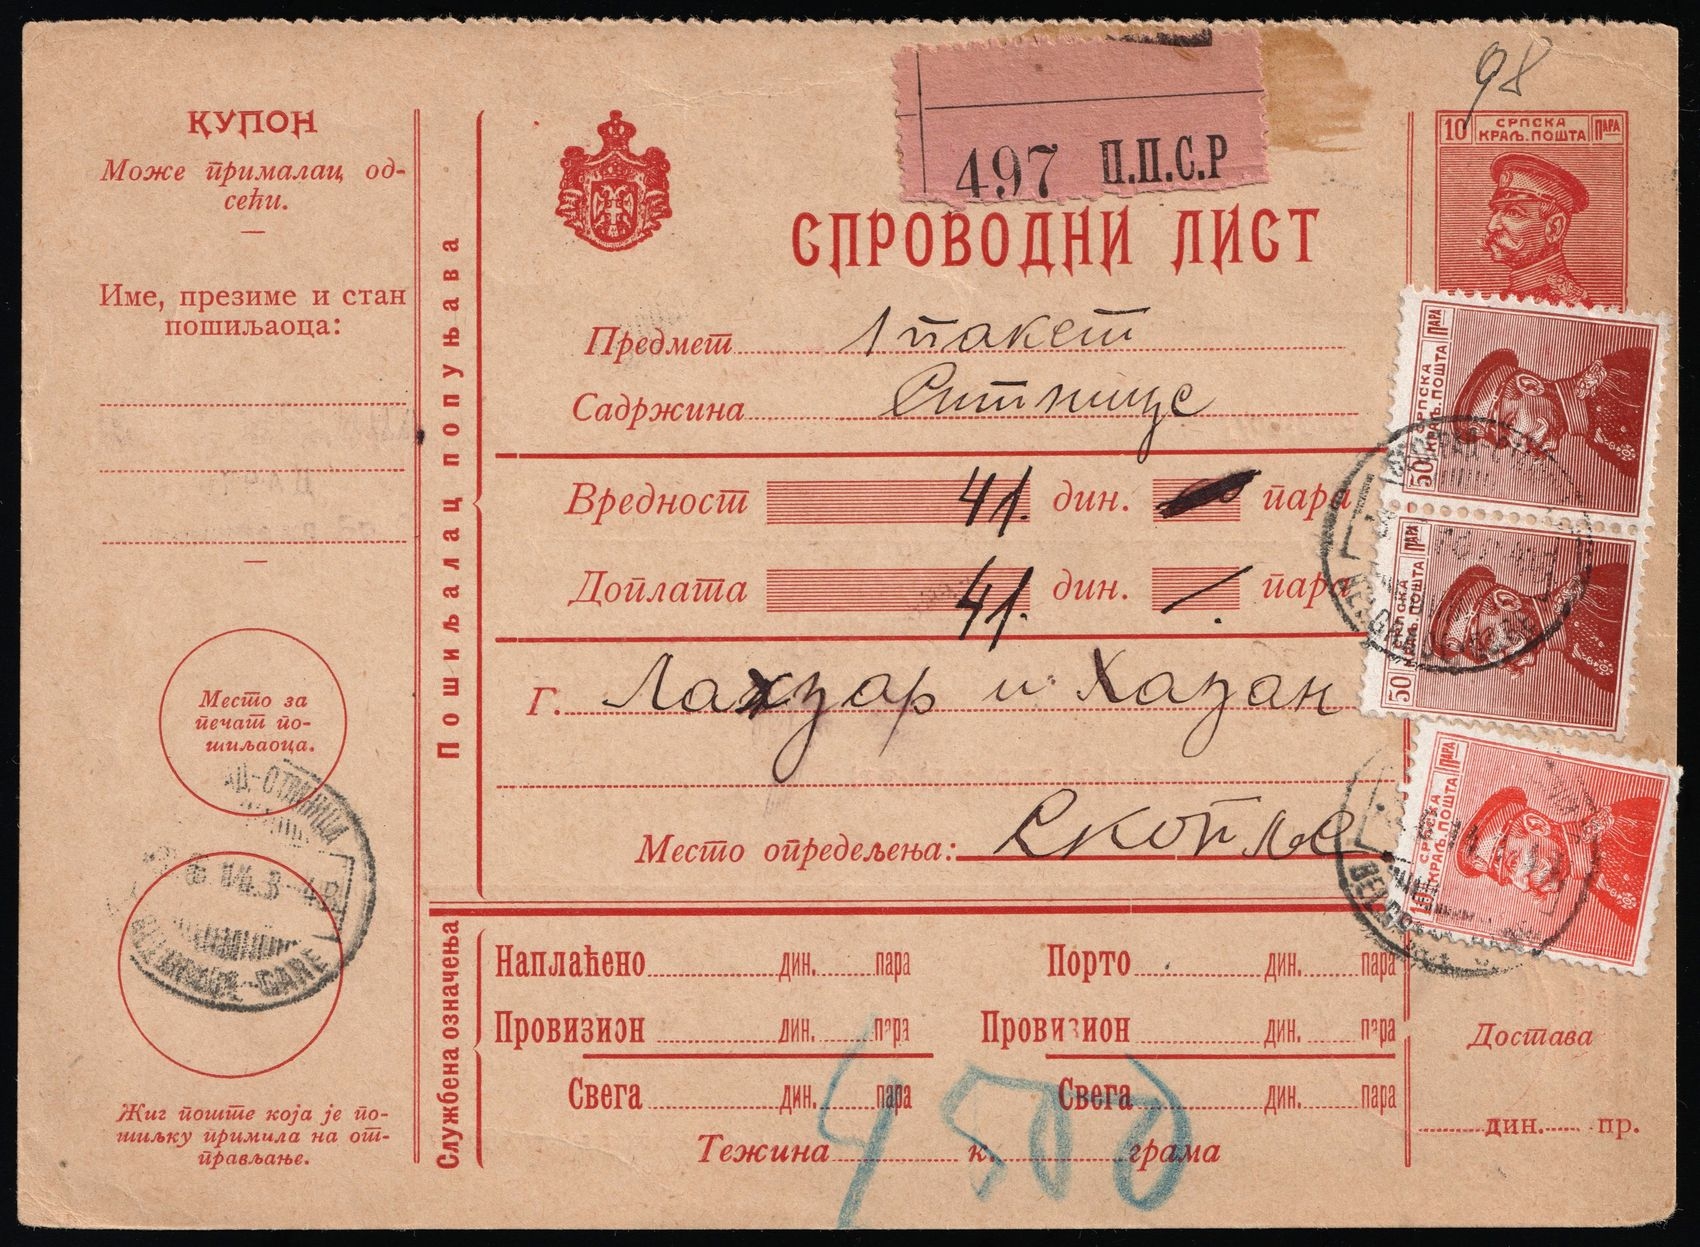 98
КУПОН
Може прималац од-
сећи.
Име, презиме и стан
пошиљаоца:
Место за
печат по-
шиљаоца.
Жиг поште која је по-
шиљку примила на от-
прављање.
BELGRADE-GARE
Пошиљалац попуњава
497 П.П.С.Р
СПРОВОДНИ ЛИСТ
Предмет 1 пакет
Садржина Ситнице
Вредност 41. дин. пара
Доплата 41. дин. / пара
Г. Лазар и Хазан
Место опредељења: Скопље
Службена означења
Наплаћено дин. пара Порто дин. пара
Провизион дин. пара Провизион дин. пара
Свега дин. пара Свега дин. пара
Тежина к. грама
4500
10 СРПСКА ПАРА
КРАЉ. ПОШТА
50 СРПСКА ПАРА
КРАЉ. ПОШТА
50 СРПСКА ПАРА
КРАЉ. ПОШТА
10 СРПСКА ПАРА
КРАЉ. ПОШТА
Достава
дин. пр.